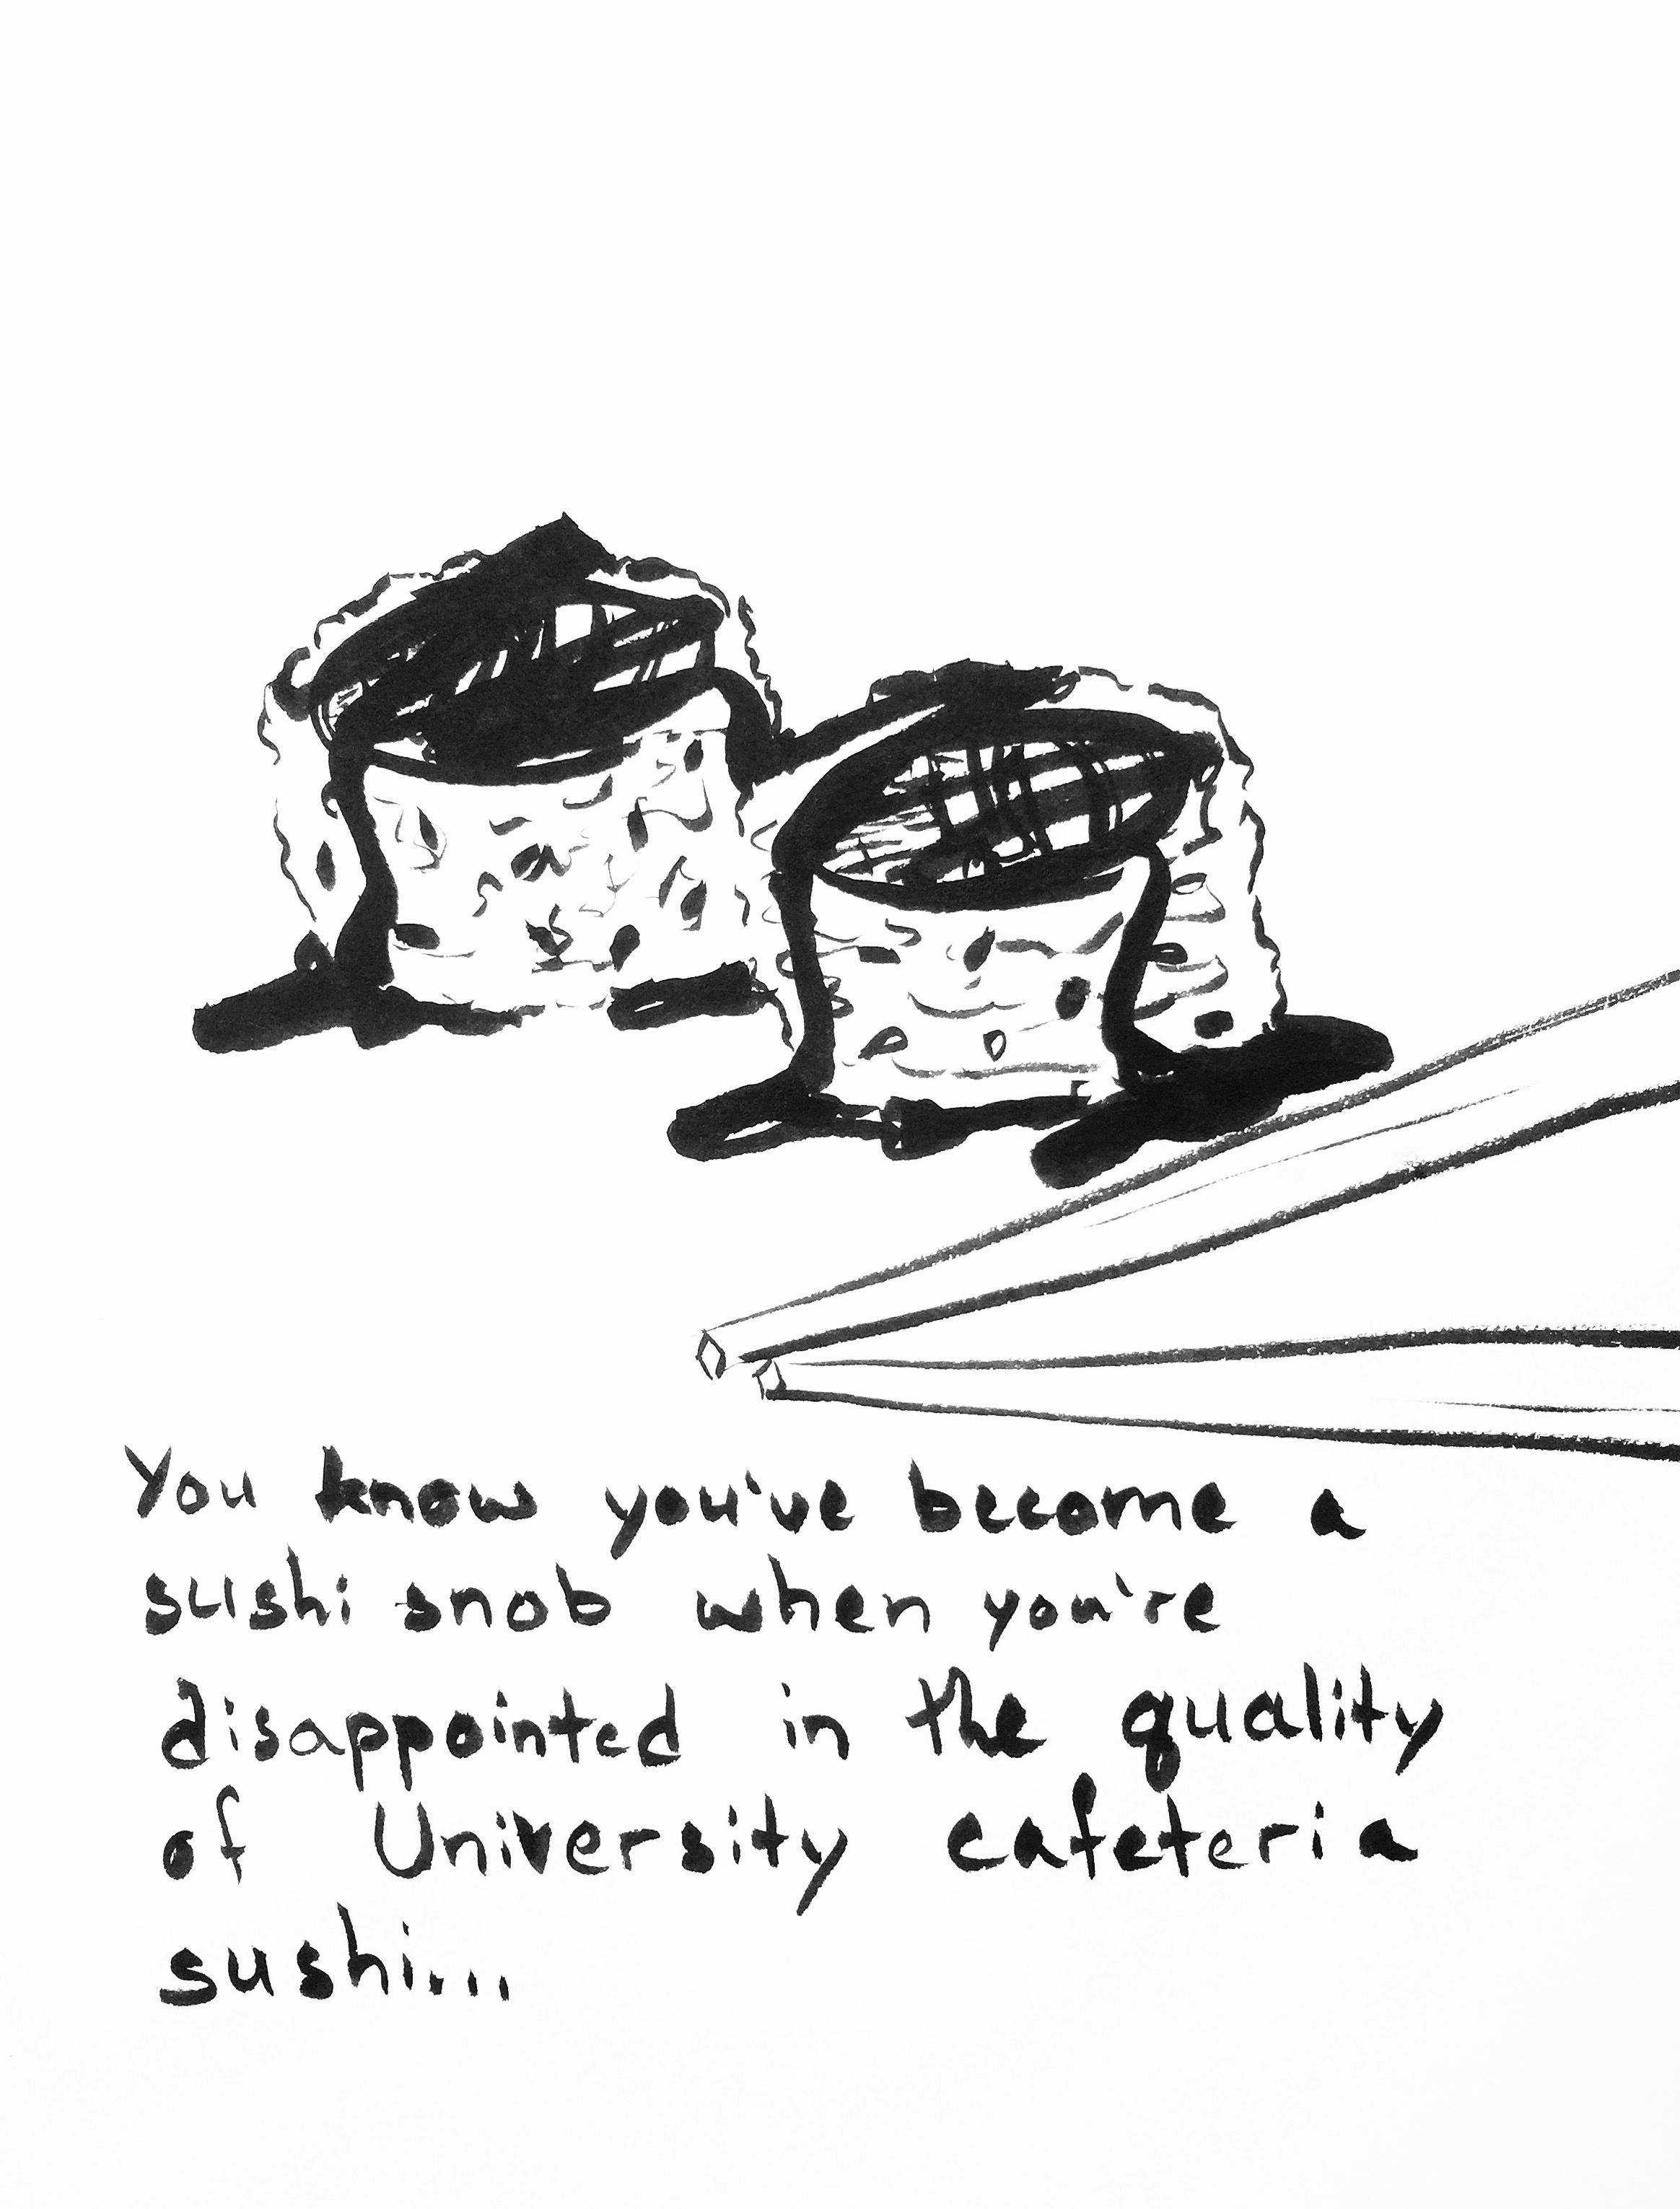 You know you've become a
sushi snob when you're
disappointed in the quality
of University cafeteria
sushi...